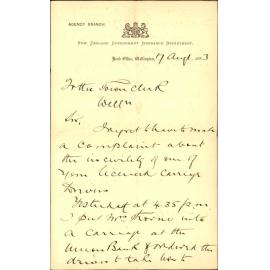 AGENCY BRANCH.
NEW ZEALAND GOVERNMENT INSURANCE DEPARTMENT,
Head Office, Wellington, 17 Augt 3
To the Town Clerk
Welln
Sir,
I regret to have to make
a complaint about
the incivility of one of
your licensed carriage
Drivers
Yesterday at 4.35 p.m
I put Mrs into
a carriage at the
Union Bank & ordered the
driver to take her to